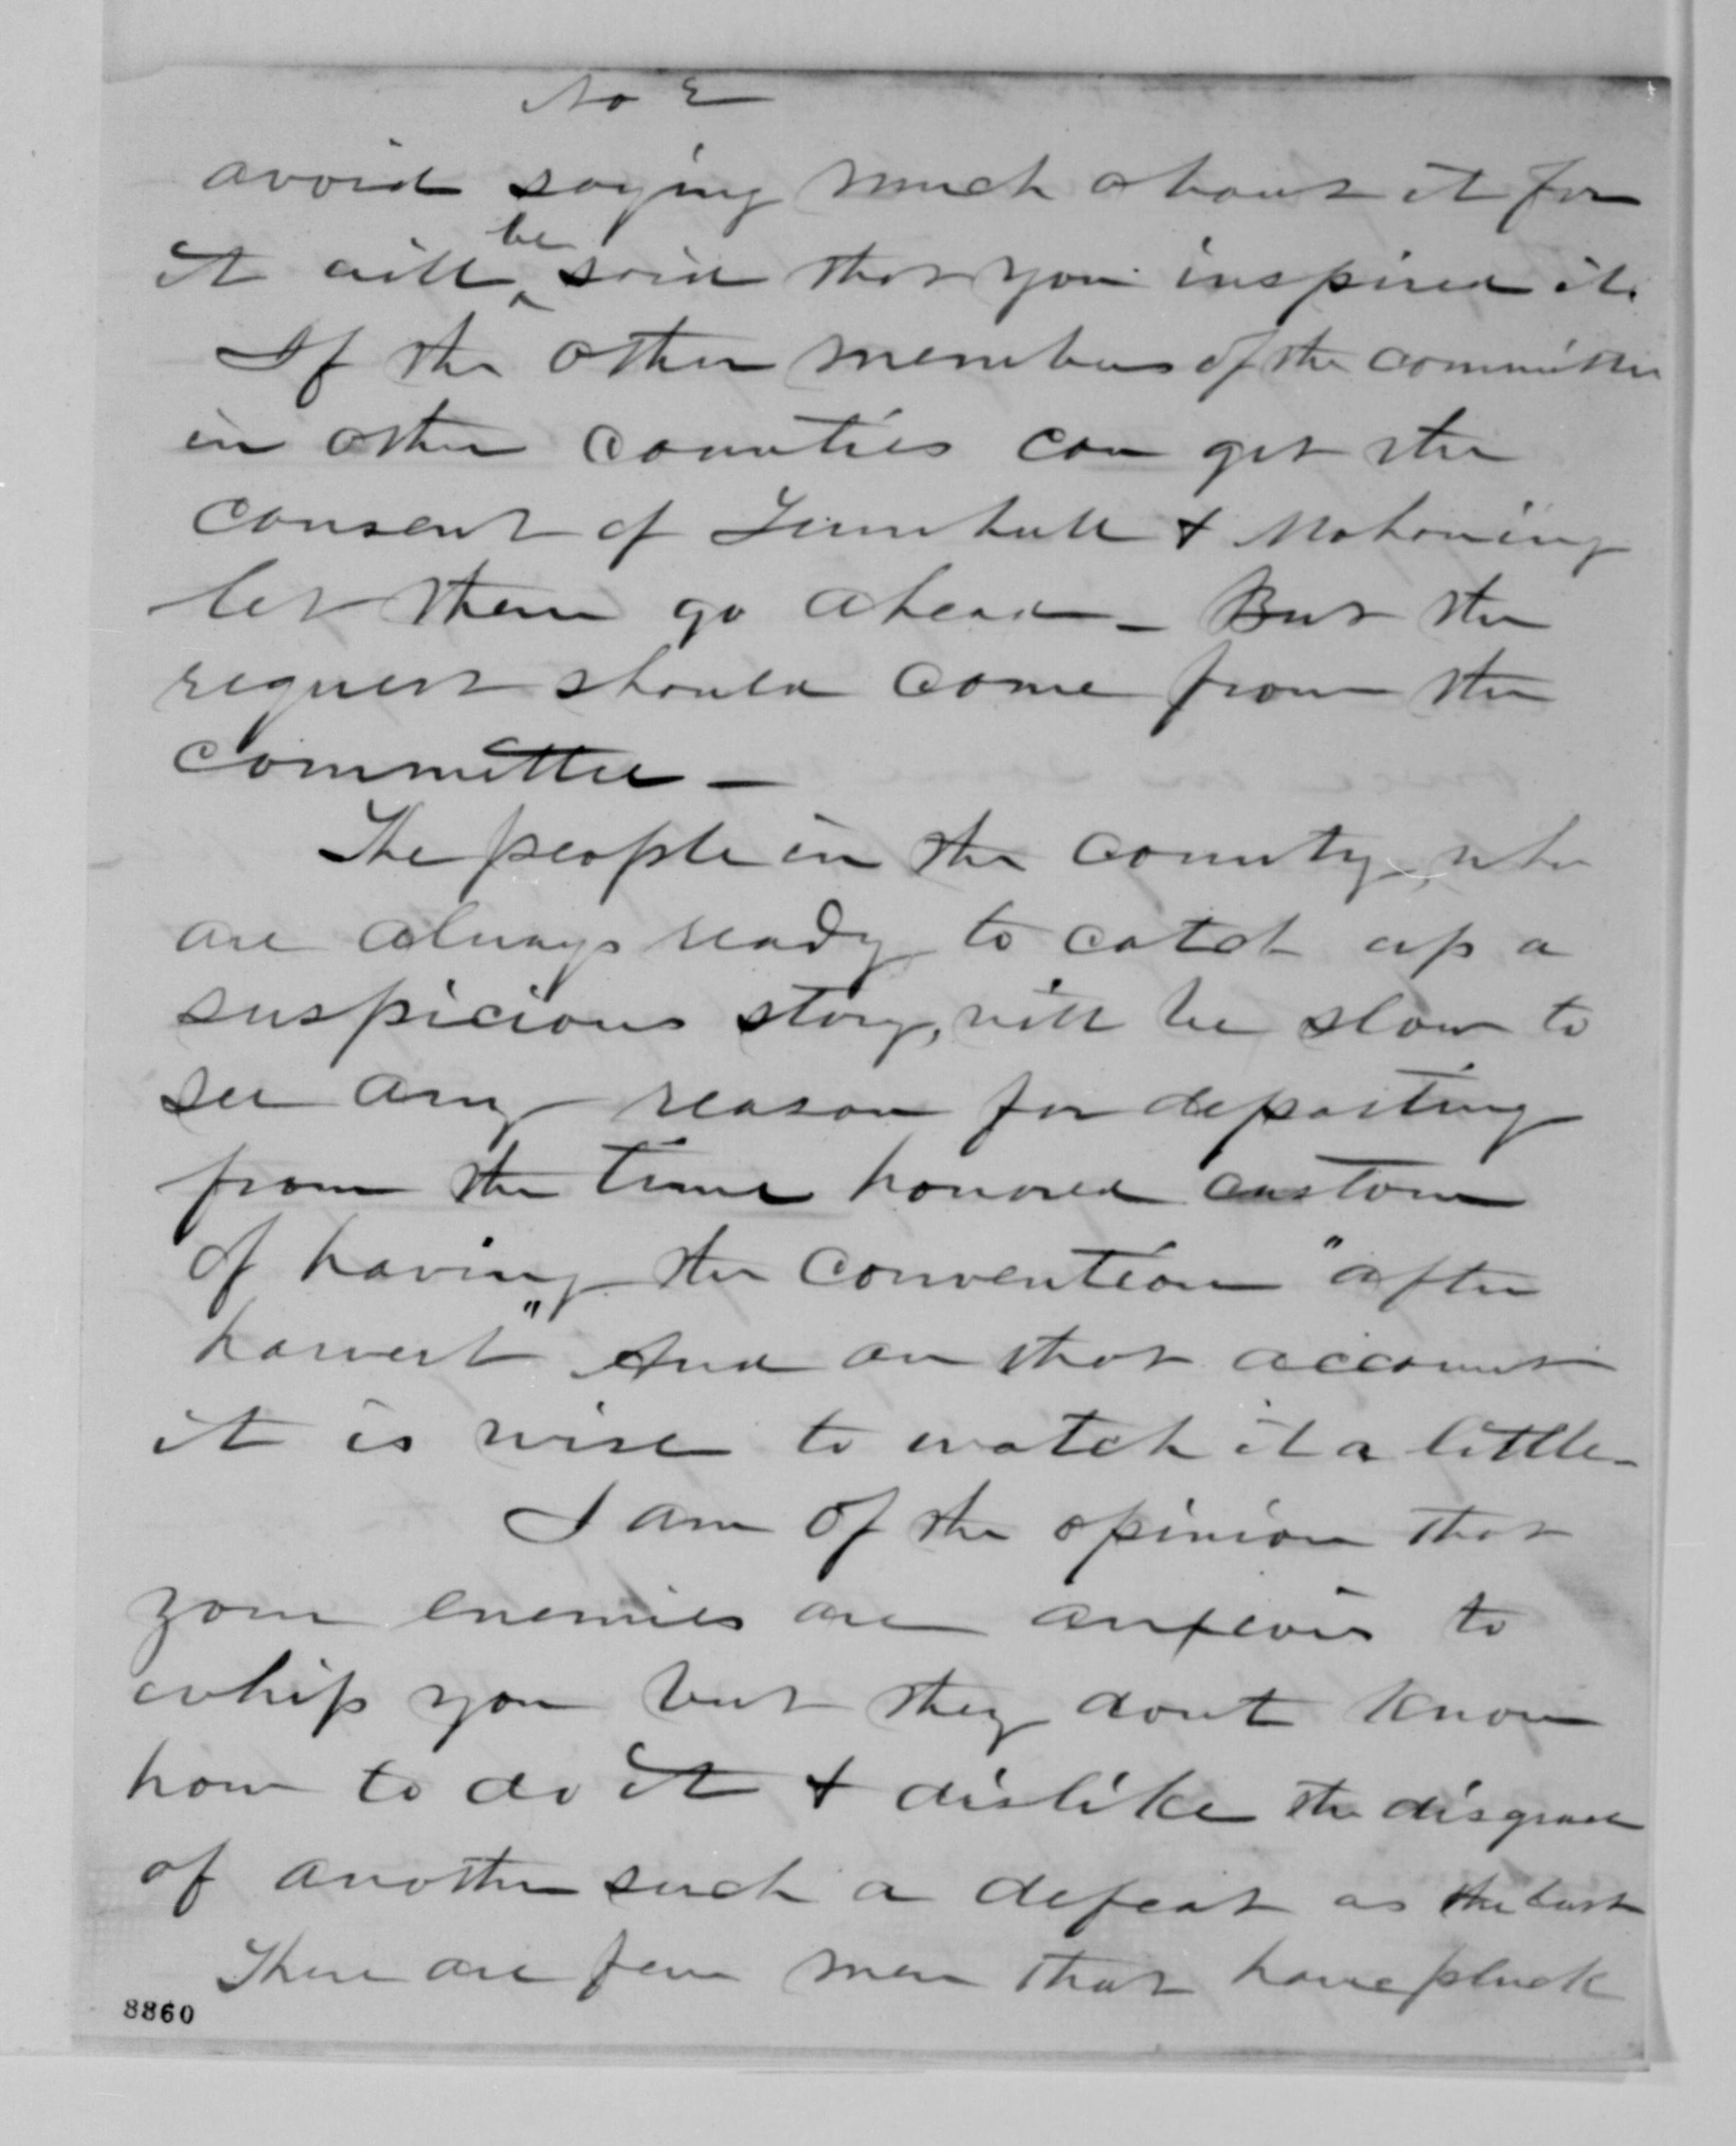 No 2
avoid saying much about it for
it will be said that you inspired it.
If the other members of the committee
in other counties can get the
consent of Trumbull & Mahoning
let them go ahead - But the
request should come from the
committee -
The people in the county, who
are always ready to catch up a
suspicious story, will be slow to
see any reason for departing
from the time honored custom
of having the convention "after
harvest" And on that account
it is wise to watch it a little -
I am of the opinion that
your enemies are anxious to
whip you but they dont know
how to do it & dislike the disgrace
of another such a defeat as the last
There are few men that have pluck
8860